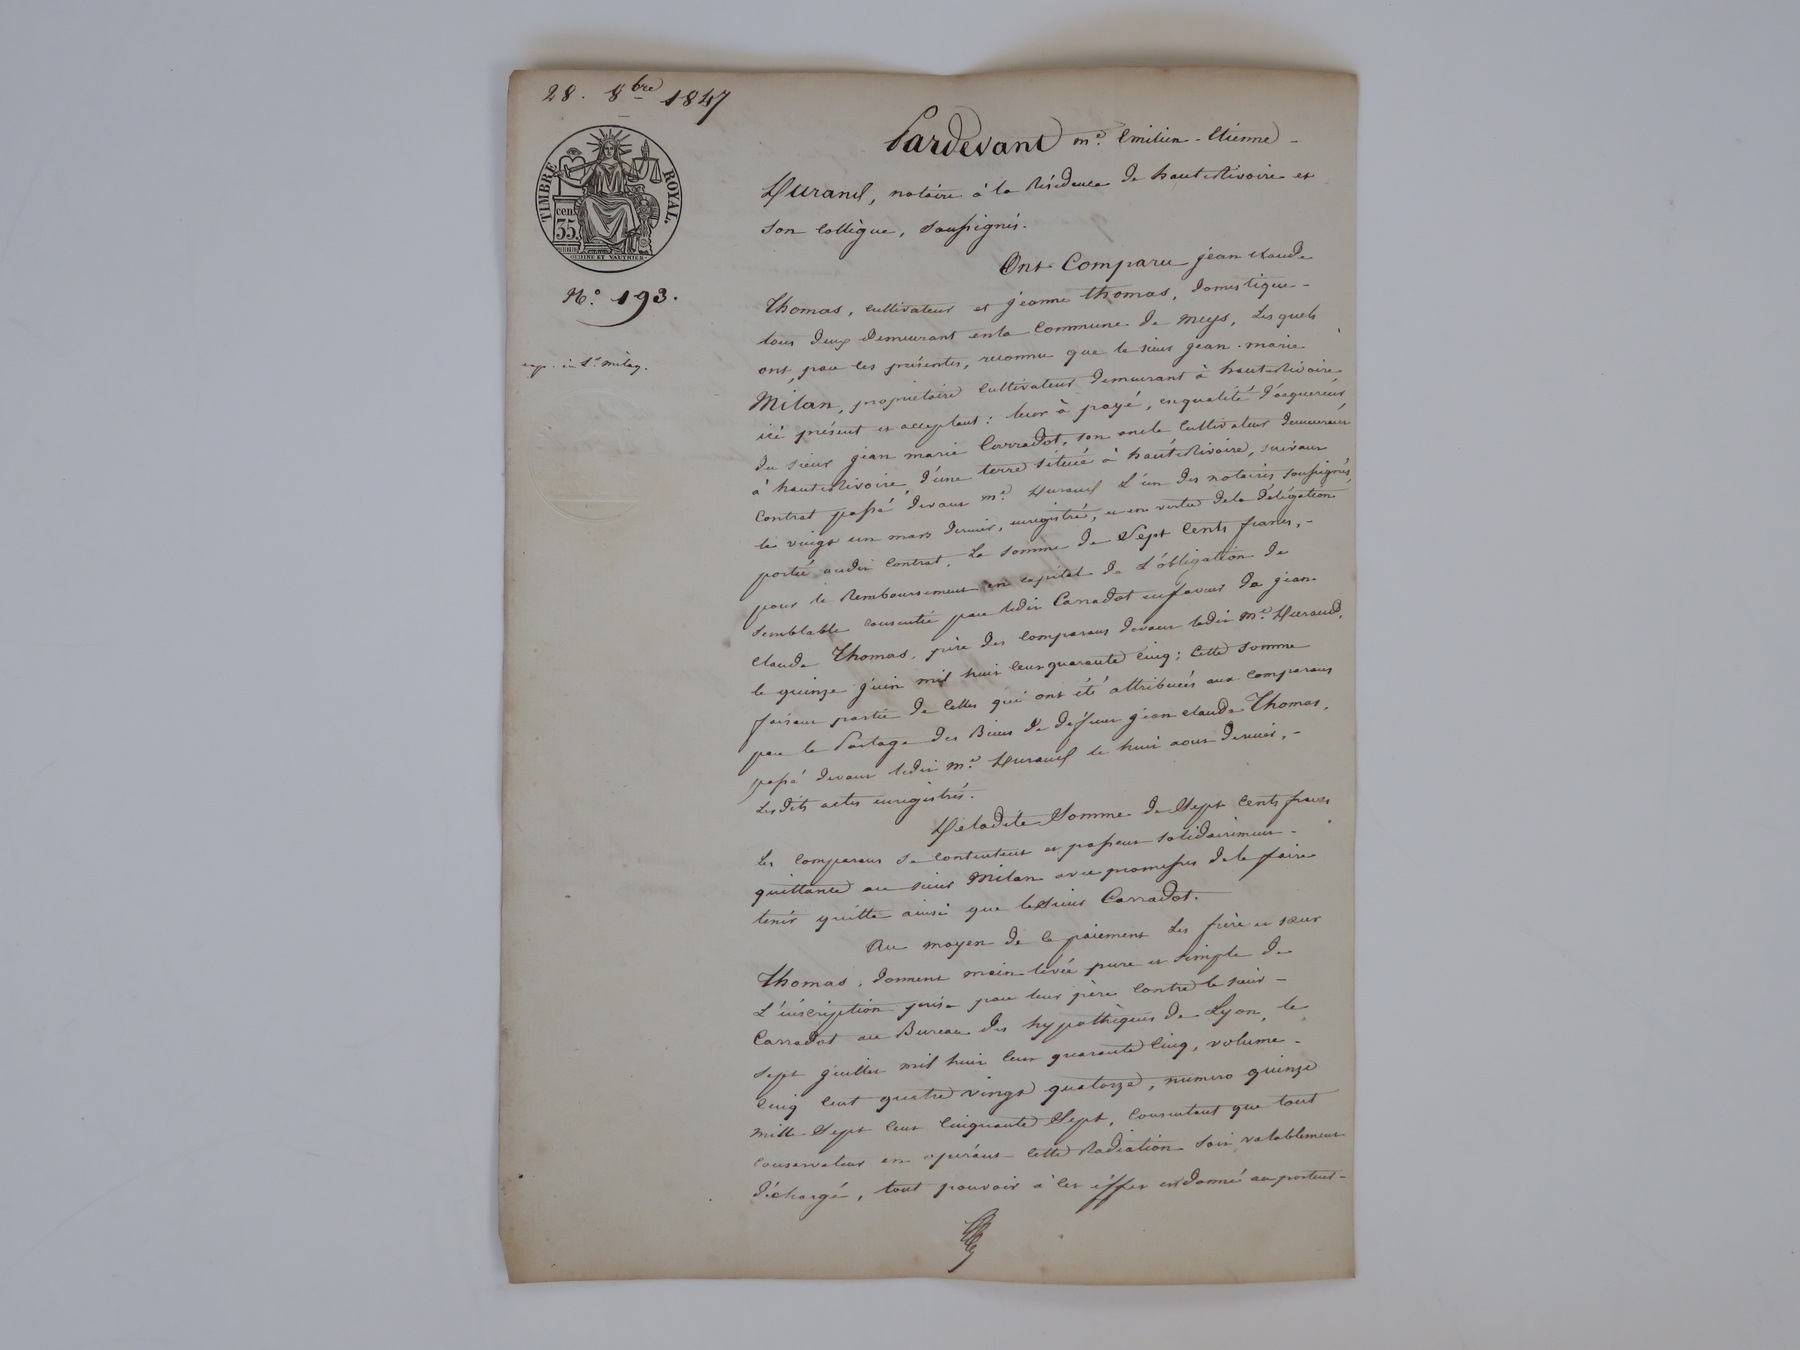 28. 8bre 1847
TIMBRE ROYAL.
cen. 35.
N.° 193.
Pardevant m.e Emilien-Etienne -
Durand, notaire à la Résidence de hauteRivoire et
son collègue, soussignés.
Ont Comparu jean claude
Thomas, cultivateur et jeanne thomas, domestique -
tous deux demeurant en la commune de meys, Lesquels
ont, par les présentes, reconnu que le sieur jean-marie
Milan, propriétaire cultivateur demeurant à hauteRivoire
ici présent et acceptant : leur à payé, en qualité d'acquéreur,
du sieur jean marie Carradot, son oncle cultivateur demeurant
à hauteRivoire, d'une terre située à hauteRivoire, suivant
contrat passé devant m.e Durand L'un des notaires soussignés,
le vingt un mars dernier, enregistré, et en vertu de la délégation
portée audit contrat, La somme de Sept Cents francs, -
pour le Remboursement en capital de L'obligation de
semblable consentie par ledit Carradot en faveur de jean
claude Thomas, père des comparans devant ledit M.e Durand,
le quinze juin mil huit cent quarante cinq ; cette somme
faisant partie de celles qui ont été attribuées aux comparans
par le Partage des Biens de défunt jean claude Thomas,
passé devant ledit M.e Durand le huit aout dernier, -
Lesdits actes enregistrés.
De ladite Somme de Sept Cents francs
Les comparans se contentent et passent solidairement -
quittance au sieur Milan avec promesses de le faire
tenir quitte ainsi que le Sieur Carradot.
Au moyen de ce paiement Les frère et sœur
Thomas, donnent main levée pure et simple de
L'inscription prise par leur père contre le sieur -
Carradot au Bureau des hypothèques de Lyon, le
sept juillet mil huit cent quarante cinq, volume -
cinq cent quatre vingt quatorze, numéro quinze
mille Sept cent cinquante Sept, consentent que tout
conservateur en opérant cette Radiation soit valablement
déchargé, tout pouvoir à cet effet est donné au porteur -